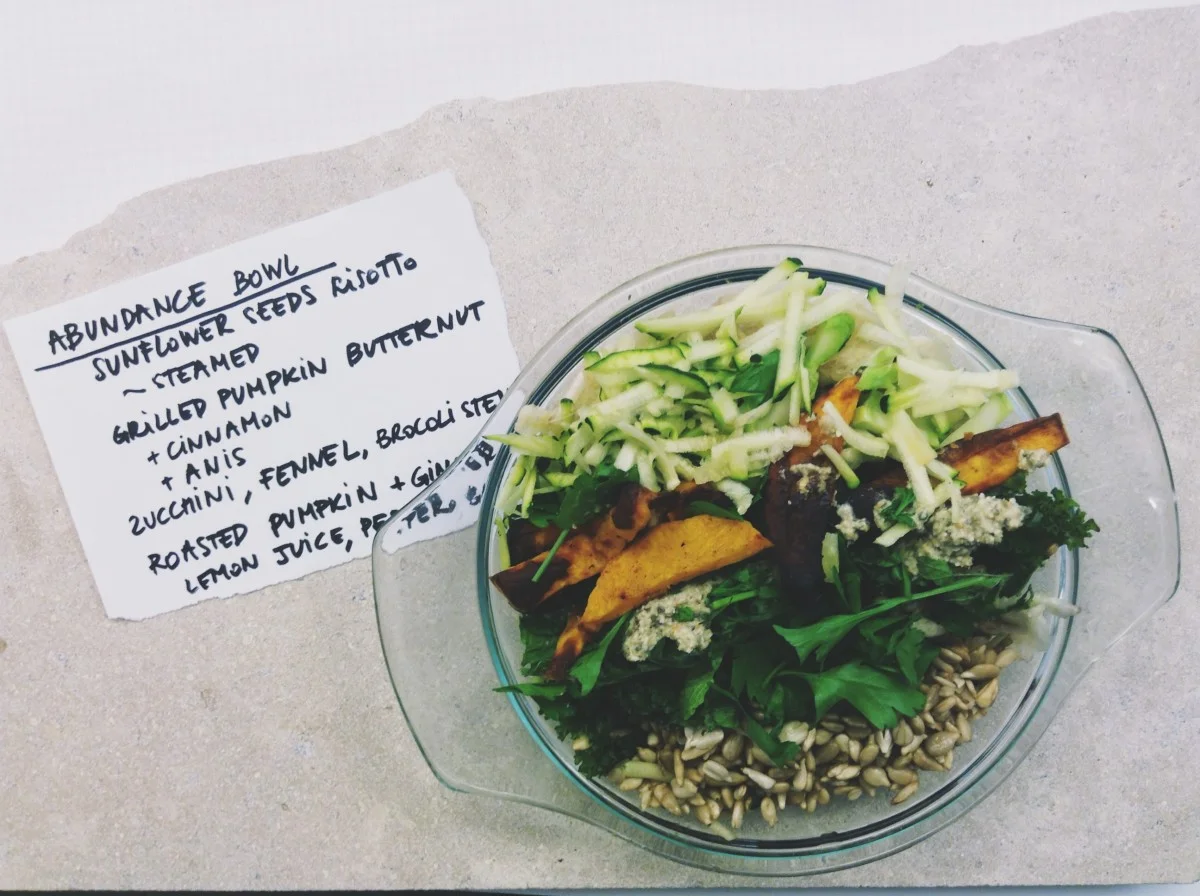 ABUNDANCE BOWL
SUNFLOWER SEEDS RISOTTO
~ STEAMED
GRILLED PUMPKIN BUTTERNUT
+ CINNAMON
+ ANIS
ZUCCHINI, FENNEL, BROCOLI
ROASTED PUMPKIN +
LEMON JUICE,